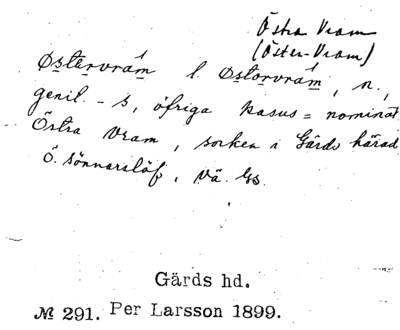 Östra Vram
(Öster-Vram)
Østervrám l. Østorvrám, n.,
genit. -s, öfriga kasus = nominat.
Östra Vram, socken i Gärds härad
Ö. Sönnarslöf, Vä. Gs.
Gärds hd.
№ 291. Per Larsson 1899.